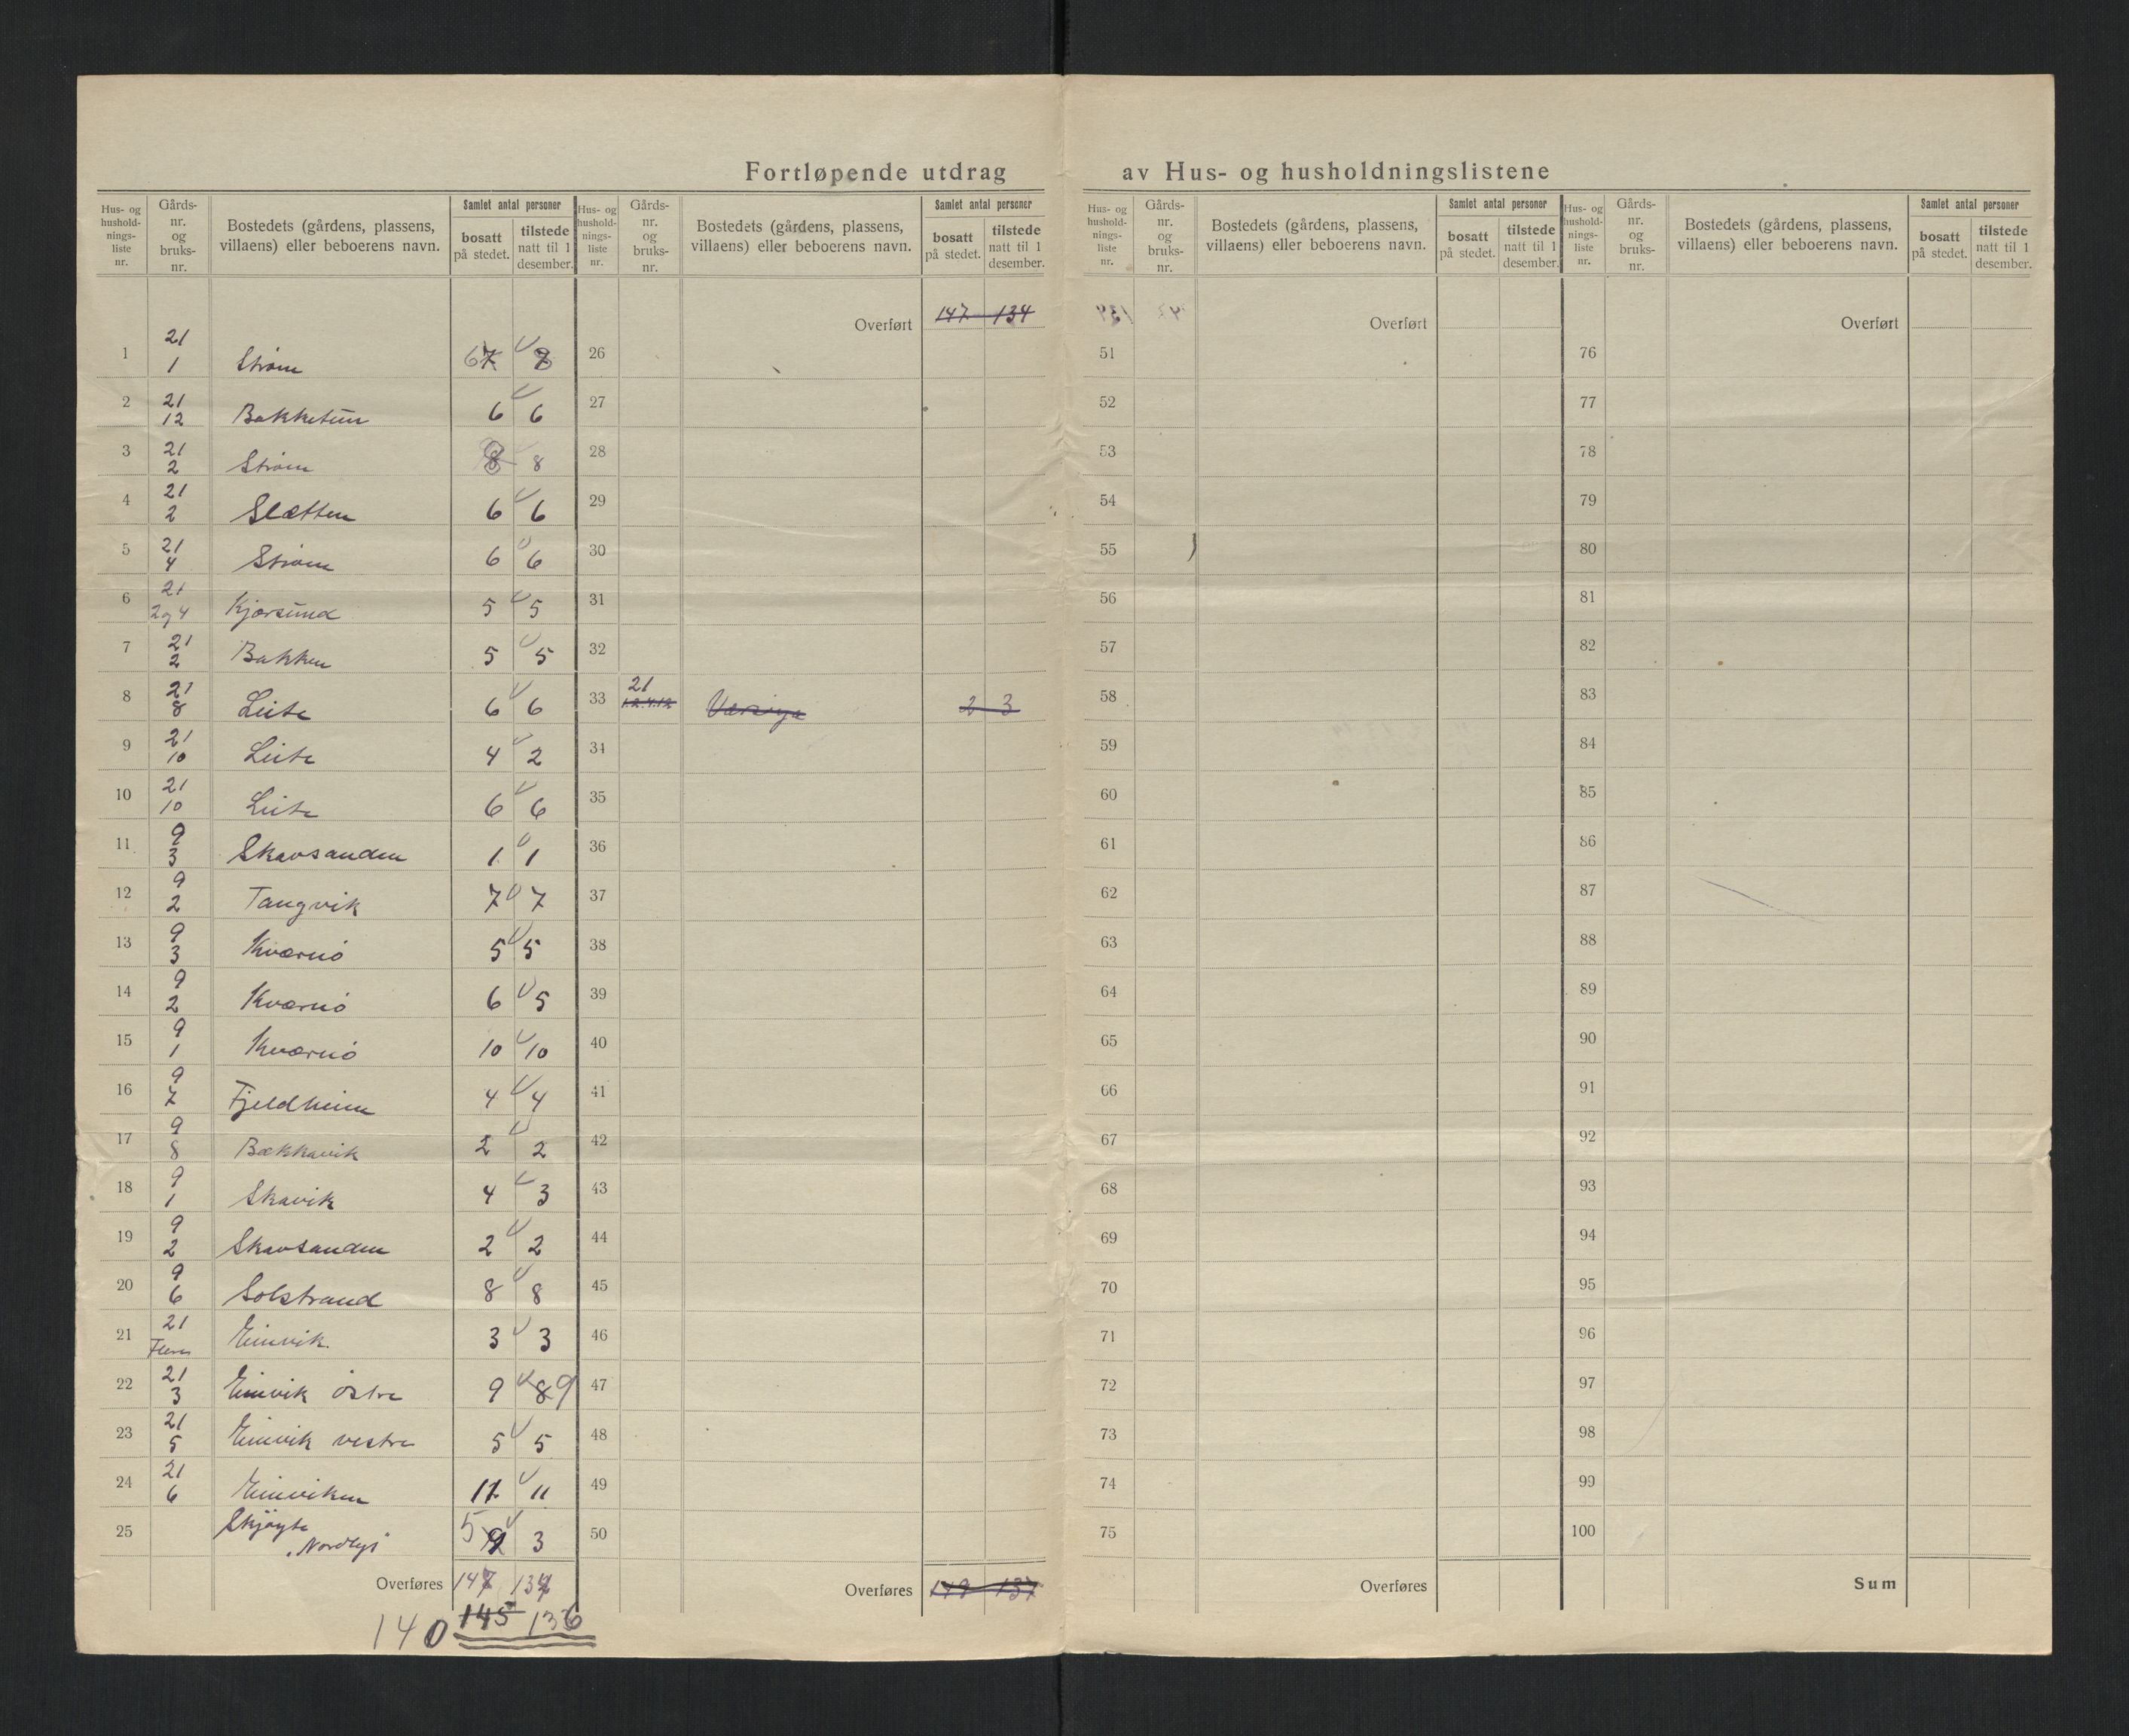 Fortløpende utdrag av Hus- og husholdningslistene
Hus- og hushold-nings-liste nr. Gårds-nr. og bruks-nr. Bostedets (gårdens, plassens, villaens) eller beboerens navn. Samlet antal personer bosatt på stedet. tilstede natt til 1 desember.
1 21 1 Strøm 6 7
2 21 12 Bakketun 6 6
3 21 2 Strøm 8 8
4 21 2 Slætten 6 6
5 21 4 Strøm 6 6
6 21 2 og 4 Kjørsund 5 5
7 21 2 Bakken 5 5
8 21 8 Leite 6 6
9 21 10 Leite 4 2
10 21 10 Leite 6 6
11 9 3 Skavsanden 1 1
12 9 2 Tangvik 7 7
13 9 3 Kværnø 5 5
14 9 2 Kværnø 6 5
15 9 1 Kværnø 10 10
16 9 7 Fjeldheim 4 4
17 9 8 Bækkavik 2 2
18 9 1 Skavik 4 3
19 9 2 Skavsanden 2 2
20 9 6 Solstrand 8 8
21 21 Flere Eimvik. 3 3
22 21 3 Eimvik østre 9 8 9
23 21 5 Eimvik vestre 5 5
24 21 6 Eimviken 11 11
25 Skjøyte "Nordlys" 5 3
Overføres 147 134
145 136
140
Hus- og hushold-nings-liste nr. Gårds-nr. og bruks-nr. Bostedets (gårdens, plassens, villaens) eller beboerens navn. Samlet antal personer bosatt på stedet. tilstede natt til 1 desember.
Overført 147 134
26
27
28
29
30
31
32
33 21 1.2.4.12 2 3
34
35
36
37
38
39
40
41
42
43
44
45
46
47
48
49
50
Overføres 149 137
Hus- og hushold-nings-liste nr. Gårds-nr. og bruks-nr. Bostedets (gårdens, plassens, villaens) eller beboerens navn. Samlet antal personer bosatt på stedet. tilstede natt til 1 desember.
Overført
51
52
53
54
55
56
57
58
59
60
61
62
63
64
65
66
67
68
69
70
71
72
73
74
75
Overføres
Hus- og hushold-nings-liste nr. Gårds-nr. og bruks-nr. Bostedets (gårdens, plassens, villaens) eller beboerens navn. Samlet antal personer bosatt på stedet. tilstede natt til 1 desember.
Overført
76
77
78
79
80
81
82
83
84
85
86
87
88
89
90
91
92
93
94
95
96
97
98
99
100
Sum